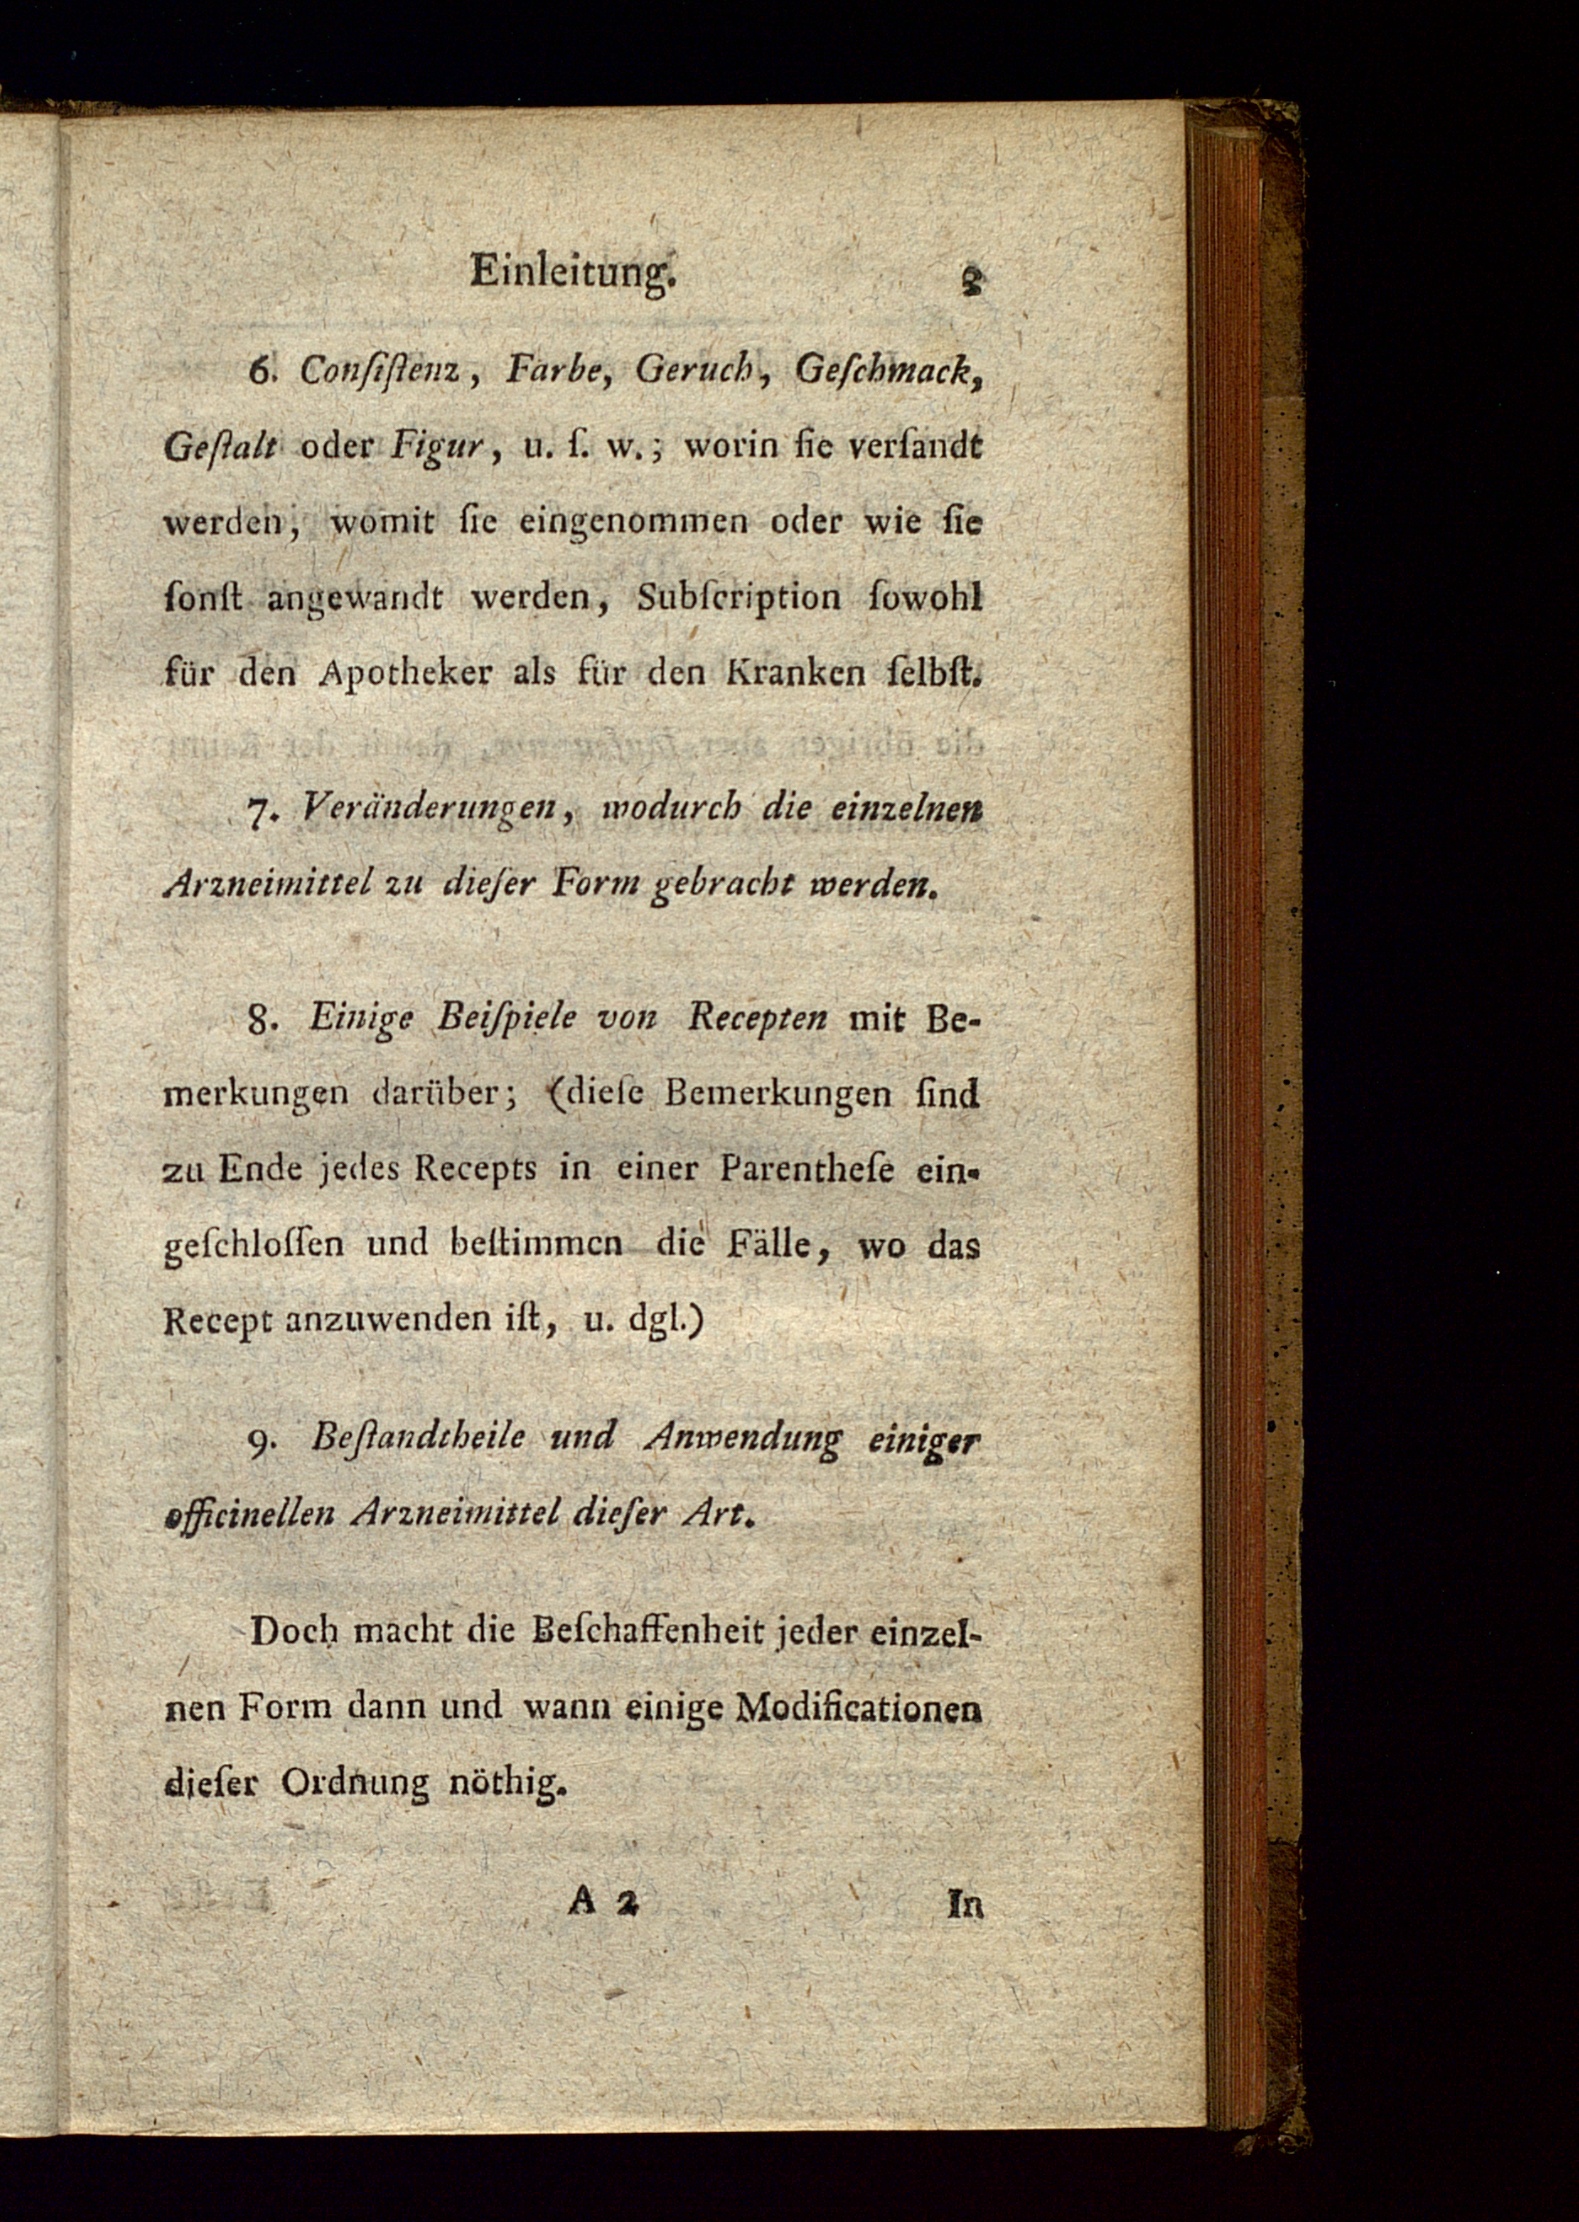 Einleitung. 3
6. Conſiſtenz, Farbe, Geruch, Geſchmack,
Geſtalt oder Figur, u. ſ. w.; worin ſie verſandt
werden, womit ſie eingenommen oder wie ſie
ſonſt angewandt werden, Subſcription ſowohl
für den Apotheker als für den Kranken ſelbſt.
7. Veränderungen, wodurch die einzelnen
Arzneimittel zu dieſer Form gebracht werden.
8. Einige Beiſpiele von Recepten mit Be-
merkungen darüber; (dieſe Bemerkungen ſind
zu Ende jedes Recepts in einer Parentheſe ein-
geſchloſſen und beſtimmen die Fälle, wo das
Recept anzuwenden iſt, u. dgl.)
9. Beſtandtheile und Anwendung einiger
officinellen Arzneimittel dieſer Art.
Doch macht die Beſchaffenheit jeder einzel-
nen Form dann und wann einige Modificationen
dieſer Ordnung nöthig.
A 2 In